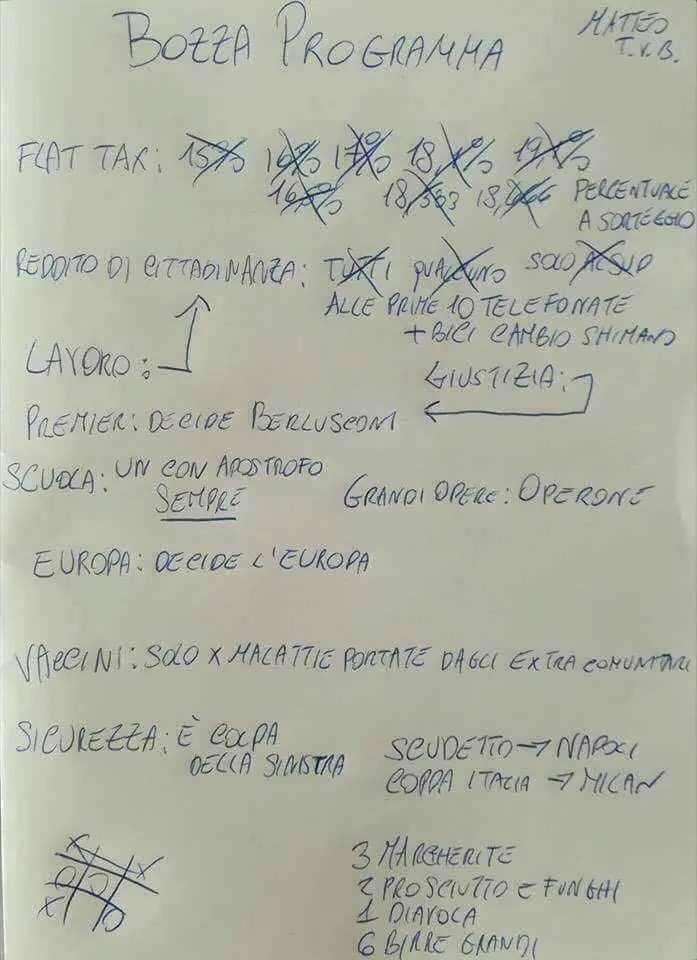 BOZZA PROGRAMMA
MATTEO
T.V.B.
FLAT TAX: 15% 16% 17% 18,1% 19,1%
16,5% 18,333 18,666 PERCENTUALE
A SORTEGGIO
REDDITO DI CITTADINANZA: TUTTI QUALCUNO SOLO AL SUD
ALLE PRIME 10 TELEFONATE
+ BICI CAMBIO SHIMANO
LAVORO:
GIUSTIZIA:
PREMIER: DECIDE BERLUSCONI
SCUOLA: UN CON APOSTROFO
SEMPRE
GRANDI OPERE: OPERONE
EUROPA: DECIDE L'EUROPA
VACCINI: SOLO X MALATTIE PORTATE DAGLI EXTRA COMUNITARI
SICUREZZA: È COLPA
DELLA SINISTRA
SCUDETTO → NAPOLI
COPPA ITALIA → MILAN
3 MARGHERITE
2 PROSCIUTTO E FUNGHI
1 DIAVOLA
6 BIRRE GRANDI